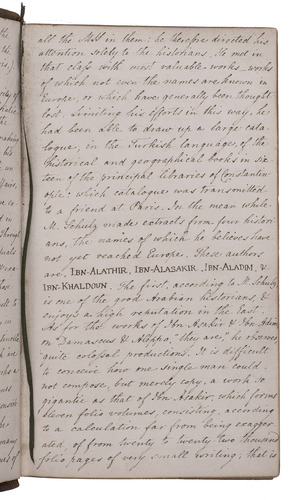 all the MSS in them: he therefore directed his
attention solely to the historians. He met in
that class with most valuable works — works
of which not even the names are known in
Europe, or which have generally been thought
lost. Limiting his efforts in this way, he
had been able to draw up a large cata-
logue, in the Turkish language, of the
historical and geographical books in six
teen of the principal libraries of Constantin
ople: which catalogue was transmitted
to a friend at Paris. In the mean while
M. Schulz made extracts from four histori
ans, the names of which he believes have
not yet reached Europe. These authors
are, IBN-ALATHIR, IBN-ALASAKIR, IBN-ALADIM, &
IBN-KHALDOUN. The first, according to M. Schulz
is one of the good Arabian historians, &
enjoys a high reputation in the East.
As for the works of Ibn Asakir & Ibn Adim
on "Damascus & Aleppo," they are, he observes
quite colossal productions. It is difficult
to conceive how one single man could,
not compose, but merely copy, a work so
gigantic as that of Ibn Asakir, which forms
eleven folio volumes, consisting, according
to a calculation far from being exagger
ated, of from twenty to twenty two thousand
folio pages of very small writing; that is